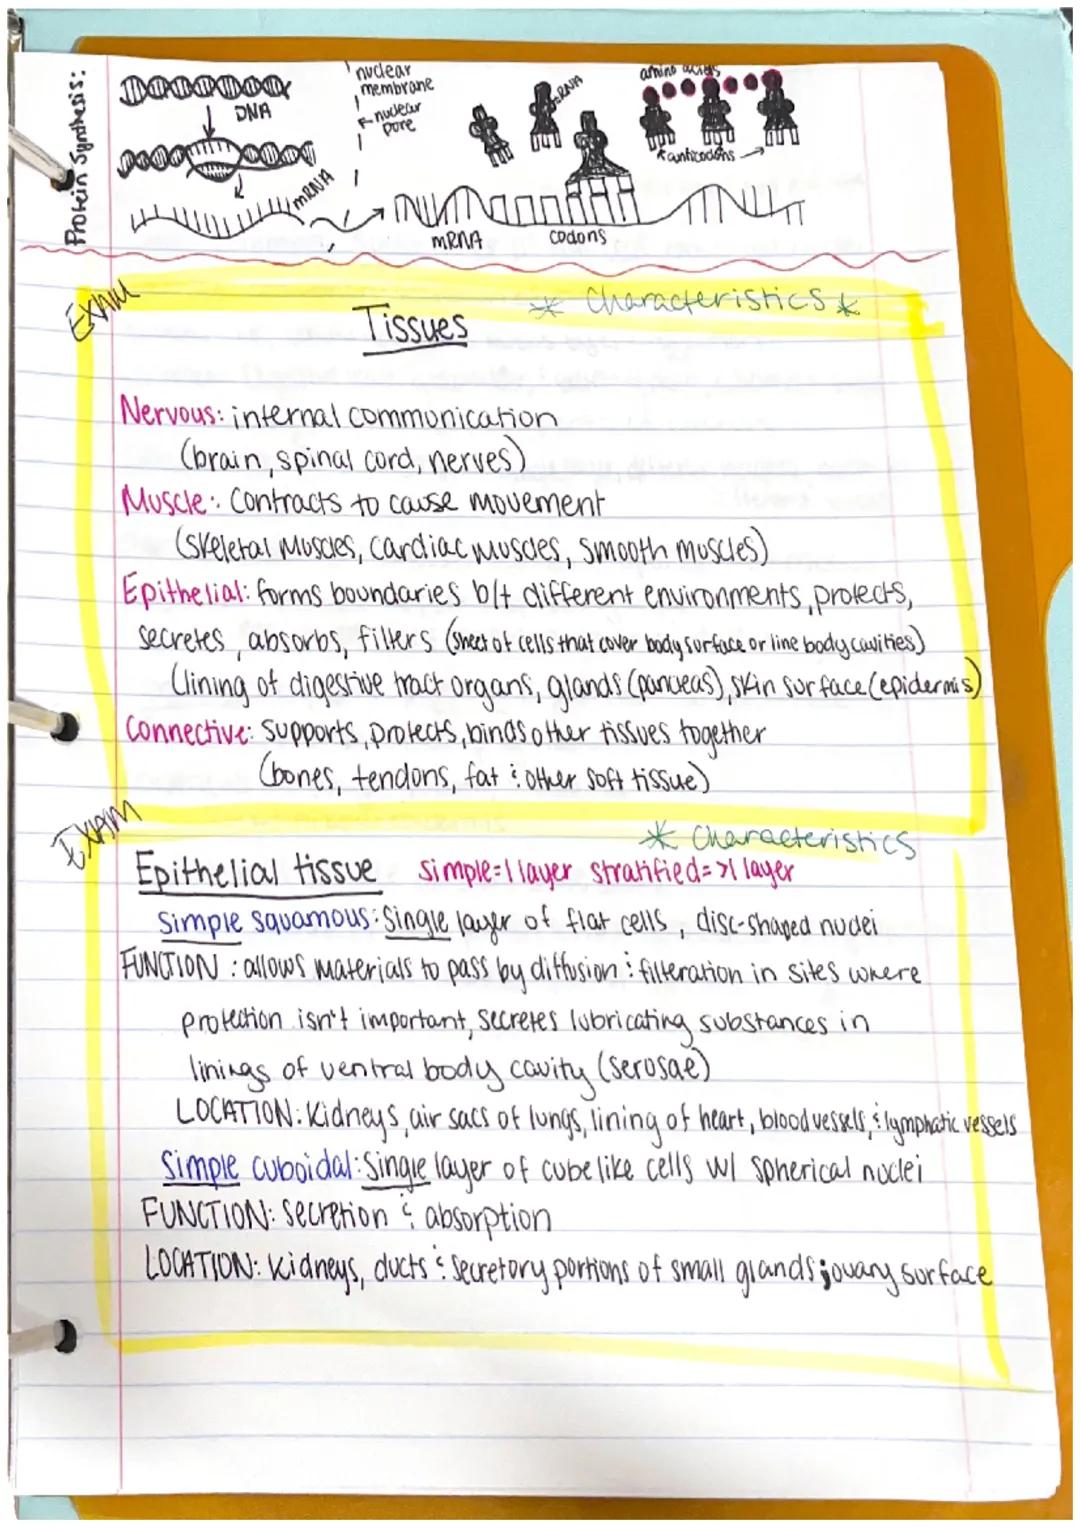 Protein Synthesis:
DNA
mRNA
nuclear
membrane
nuclear
pore
mRNA
codons
amino acids
anticodons
EXAM
* Characteristics *
Tissues
Nervous: internal communication
(brain, spinal cord, nerves)
Muscle: Contracts to cause movement
(Skeletal Muscles, Cardiac Muscles, Smooth muscles)
Epithelial: forms boundaries b/t different environments, protects,
secretes, absorbs, filters (sheet of cells that cover body surface or line body cavities)
(lining of digestive tract organs, glands (pancreas), skin surface (epidermis)
Connective: supports, protects, binds other tissues together
(bones, tendons, fat & other soft tissue)
EXAM
* Characteristics
Epithelial tissue simple=1 layer stratified= >1 layer
Simple squamous: Single layer of flat cells, disc-shaped nuclei
FUNCTION: allows materials to pass by diffusion & filteration in sites where
protection isn't important, secretes lubricating substances in
linings of ventral body cavity (serosae)
LOCATION: Kidneys, air sacs of lungs, lining of heart, blood vessels, & lymphatic vessels
Simple cuboidal: Single layer of cubelike cells w/ spherical nuclei
FUNCTION: Secretion & absorption
LOCATION: Kidneys, ducts & secretory portions of small glands; ovary surface